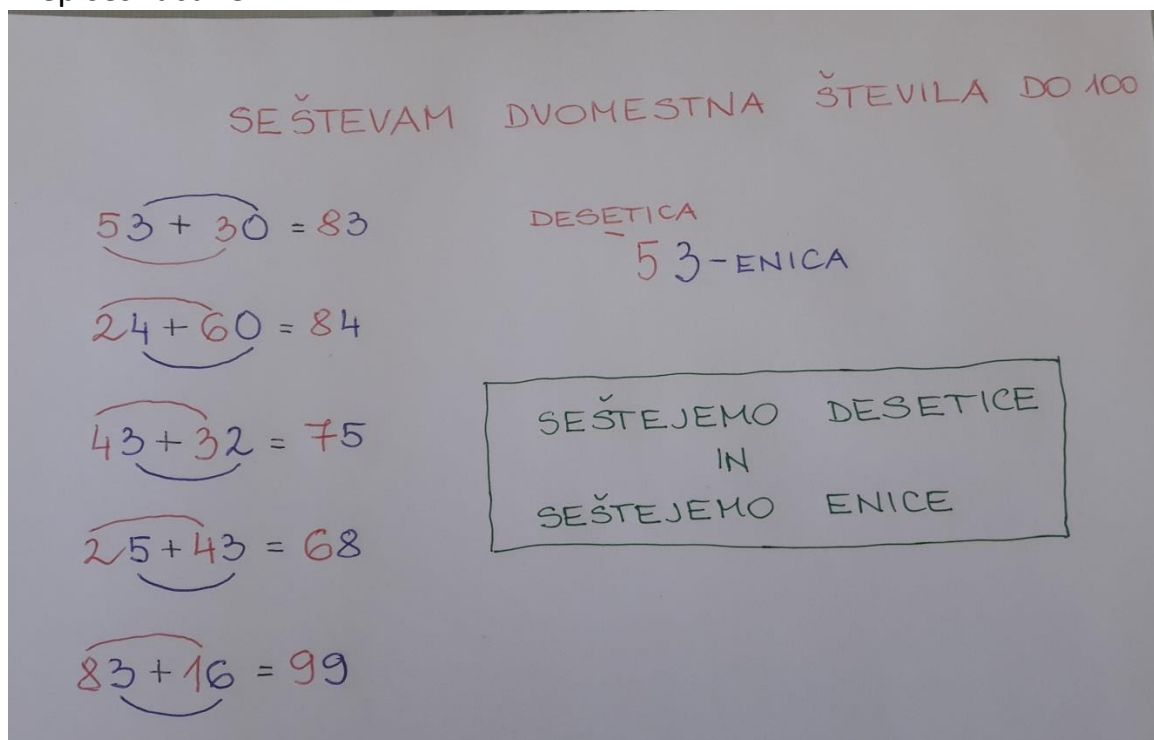 SEŠTEVAM DVOMESTNA ŠTEVILA DO 100
53 + 30 = 83
24 + 60 = 84
43 + 32 = 75
25 + 43 = 68
83 + 16 = 99
DESETICA
53 - ENICA
SEŠTEJEMO DESETICE
IN
SEŠTEJEMO ENICE